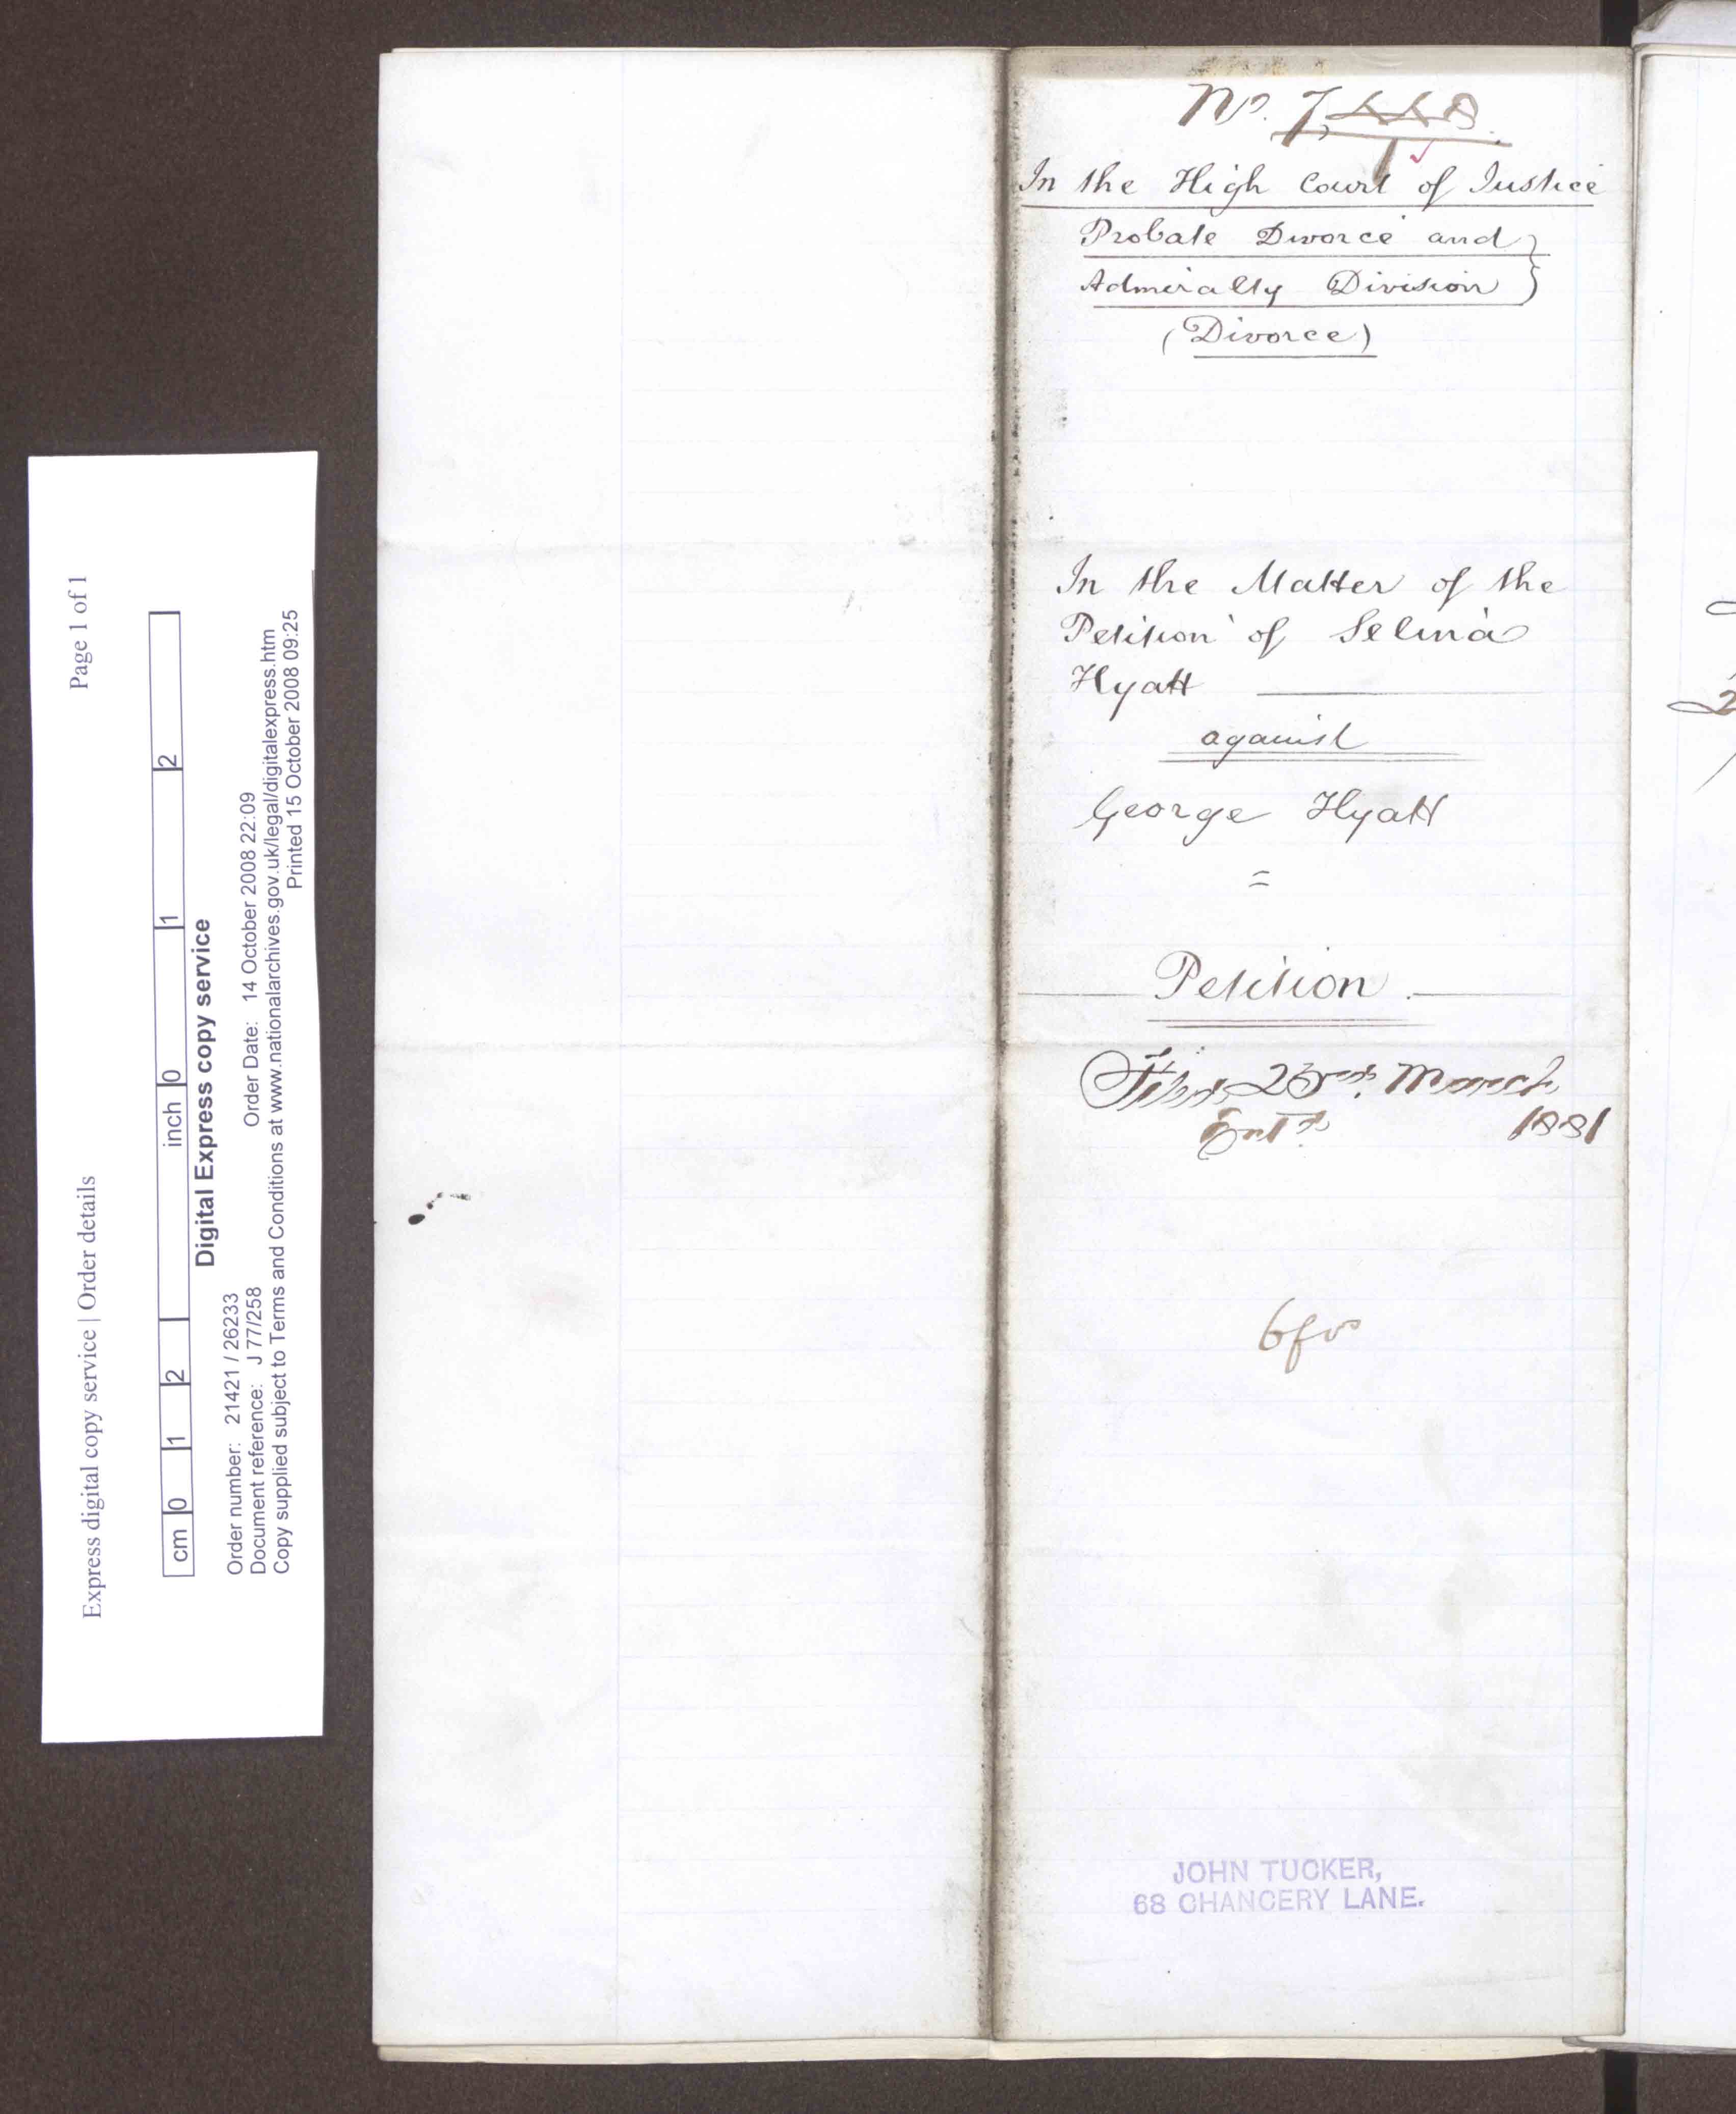 Express digital copy service | Order details Page 1 of 1
cm 0 1 2 inch 0 1 2
Digital Express copy service
Order number: 21421 / 26233 Order Date: 14 October 2008 22:09
Document reference: J 77/258
Copy supplied subject to Terms and Conditions at www.nationalarchives.gov.uk/legal/digitalexpress.htm
Printed 15 October 2008 09:25
No. 7,448.
In the High Court of Justice
Probate Divorce and
Admiralty Division
(Divorce)
In the Matter of the
Petition of Selina
Hyatt
against
George Hyatt
Petition
Filed 23rd. March
1881
JOHN TUCKER,
68 CHANCERY LANE.